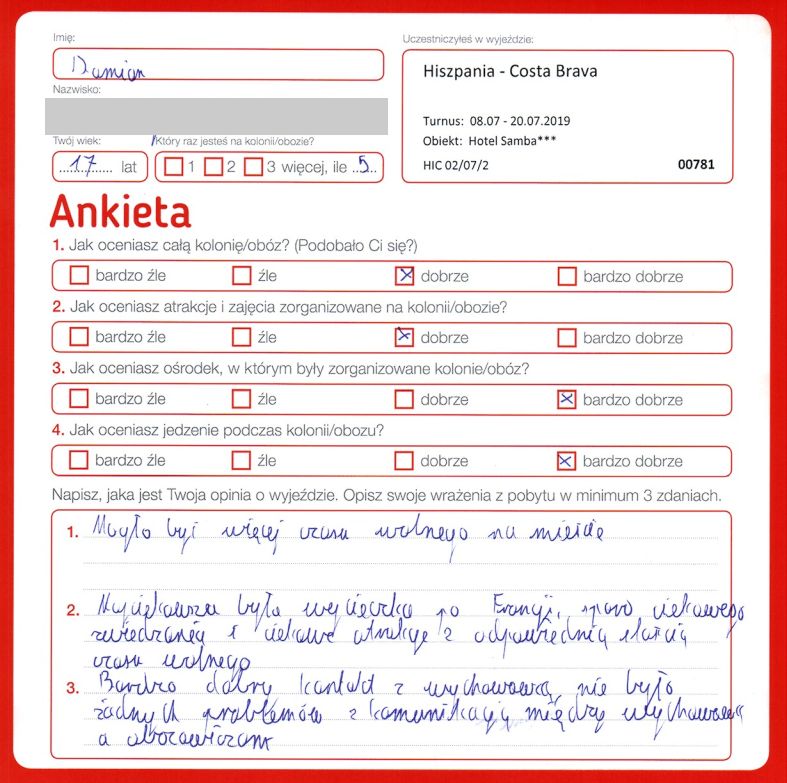 Imię:
Damian
Nazwisko:
Twój wiek:
17 lat
Który raz jesteś na kolonii/obozie?
1 2 3 więcej, ile 5
Uczestniczyłeś w wyjeździe:
Hiszpania - Costa Brava
Turnus: 08.07 - 20.07.2019
Obiekt: Hotel Samba***
HIC 02/07/2 00781
Ankieta
1. Jak oceniasz całą kolonię/obóz? (Podobało Ci się?)
bardzo źle źle dobrze bardzo dobrze
2. Jak oceniasz atrakcje i zajęcia zorganizowane na kolonii/obozie?
bardzo źle źle dobrze bardzo dobrze
3. Jak oceniasz ośrodek, w którym były zorganizowane kolonie/obóz?
bardzo źle źle dobrze bardzo dobrze
4. Jak oceniasz jedzenie podczas kolonii/obozu?
bardzo źle źle dobrze bardzo dobrze
Napisz, jaka jest Twoja opinia o wyjeździe. Opisz swoje wrażenia z pobytu w minimum 3 zdaniach.
1. Mogło być więcej czasu wolnego na mieście
2. Najciekawsza była wycieczka po Francji, sporo ciekawego
zwiedzania i ciekawe atrakcje z odpowiednią ilością
czasu wolnego
3. Bardzo dobry kontakt z wychowawcą, nie było
żadnych problemów z komunikacją między wychowawcą
a obozowiczami